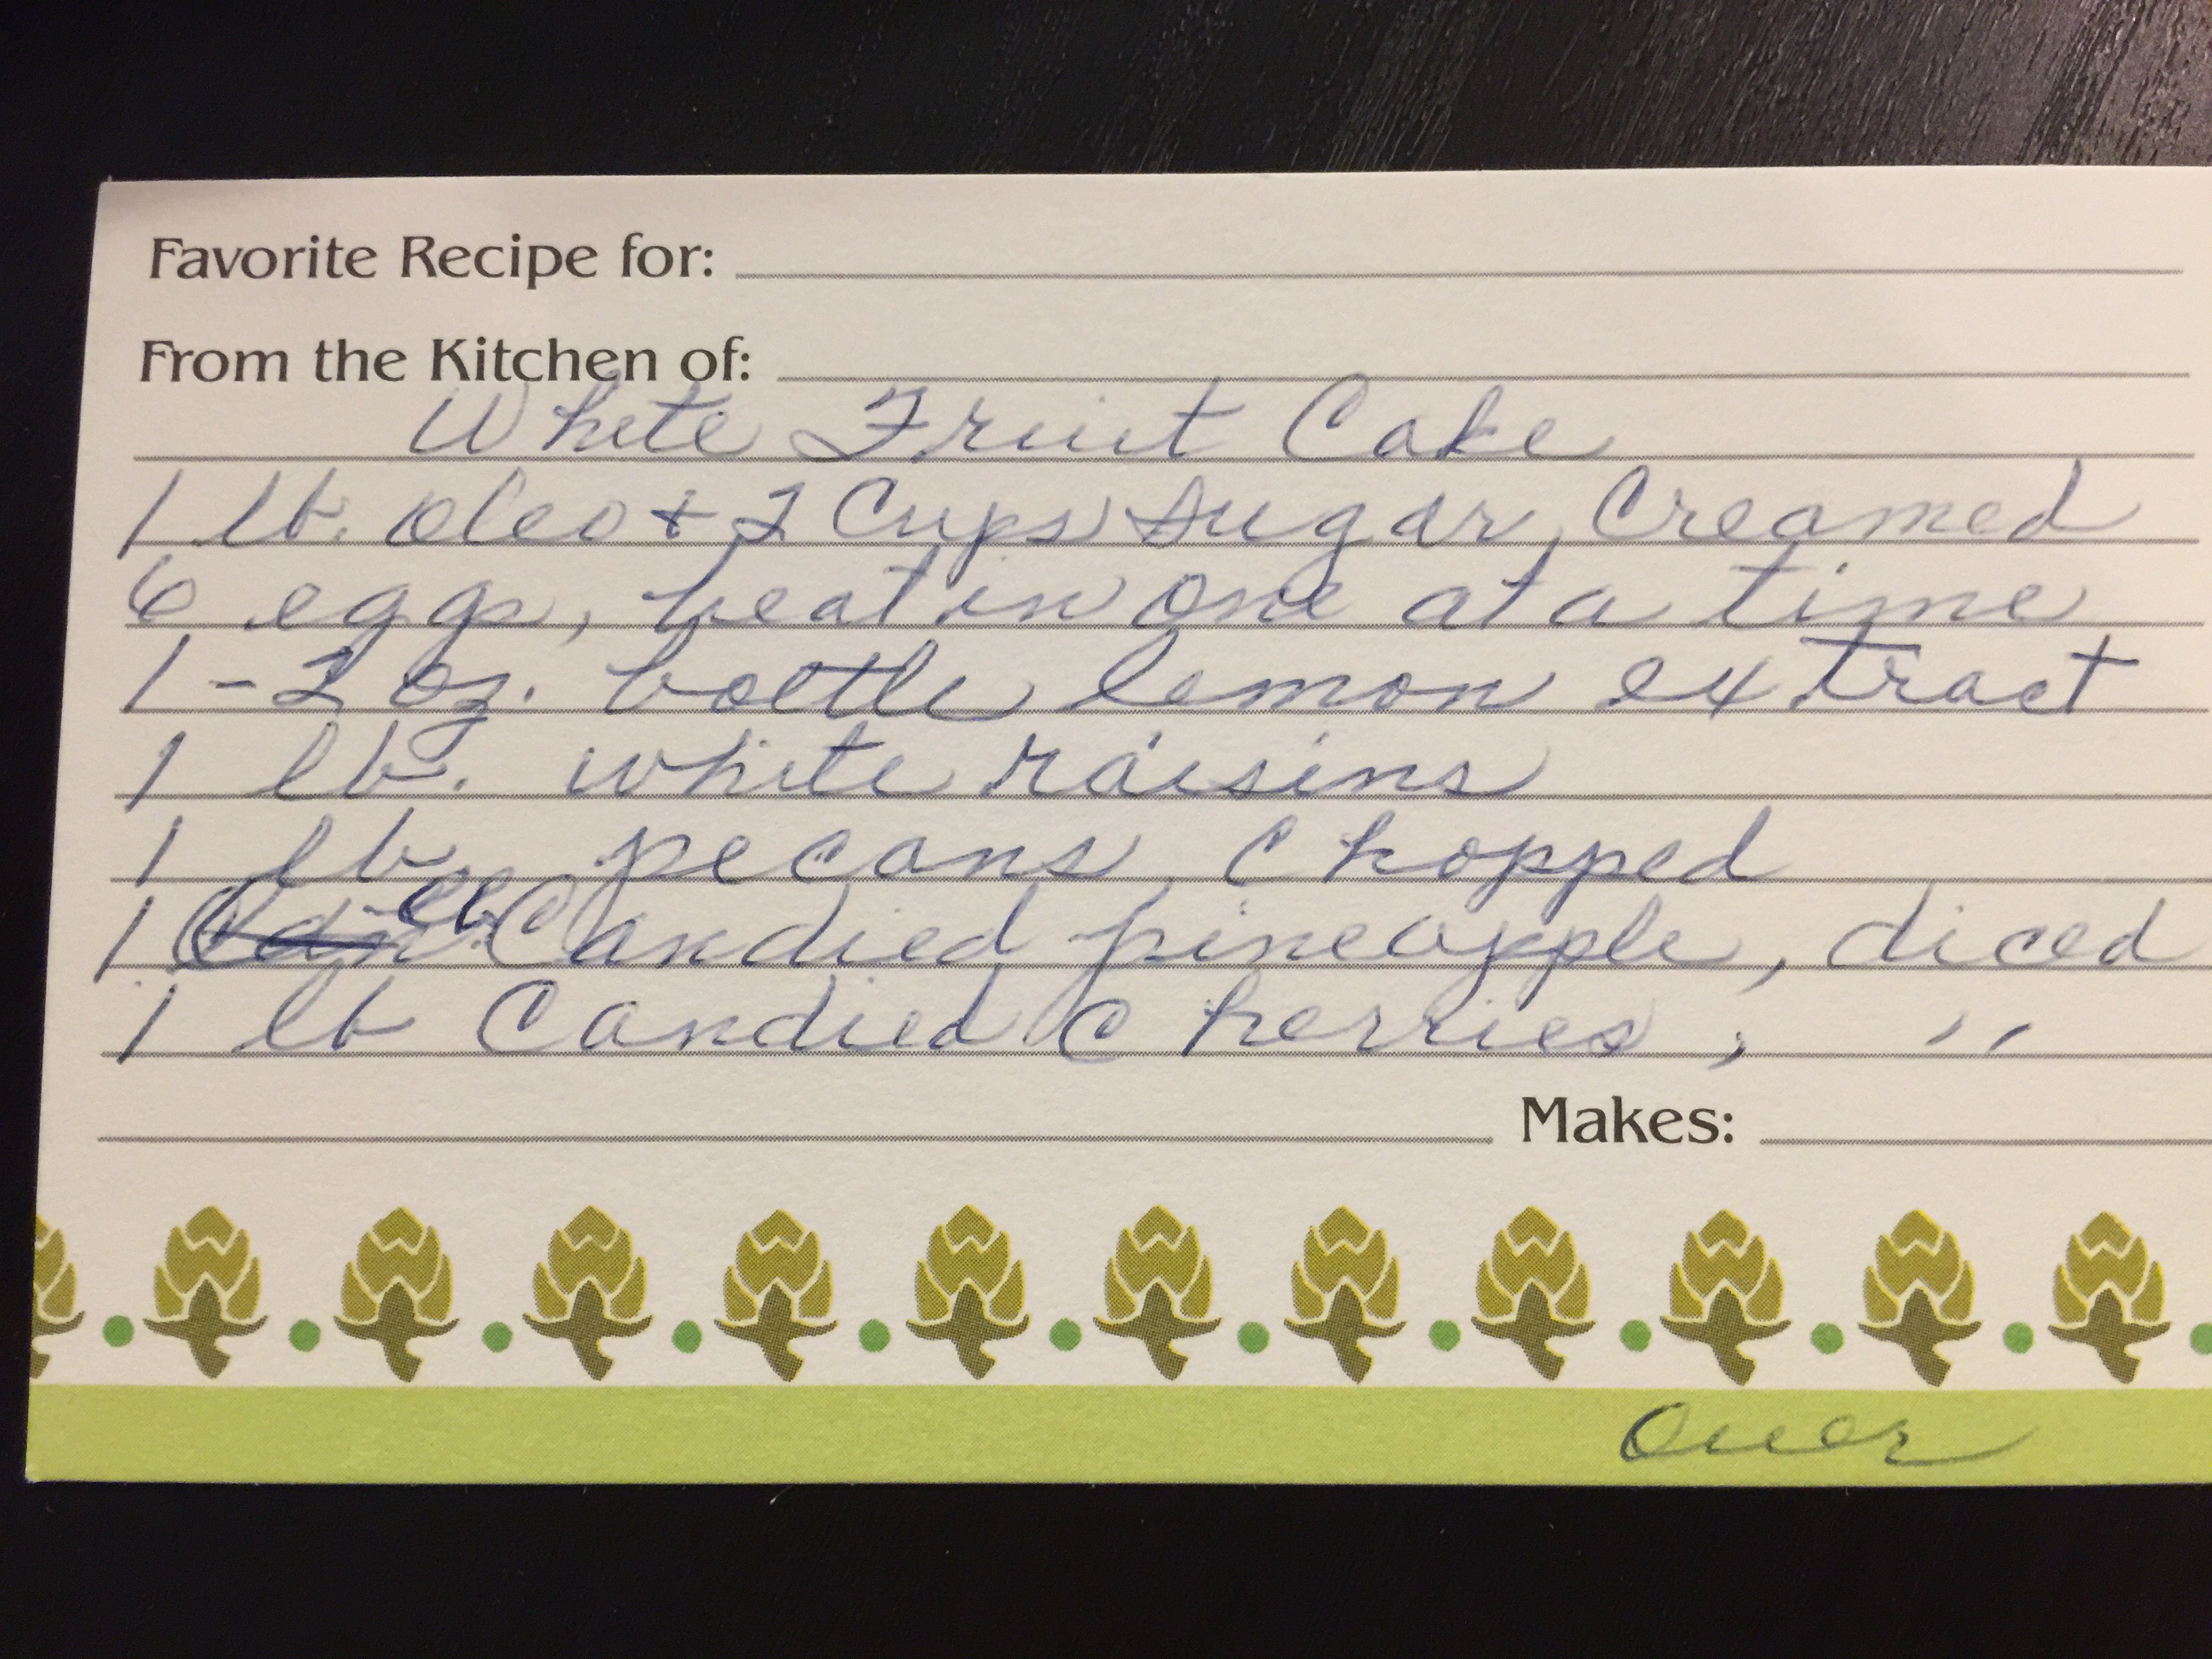 Favorite Recipe for:
From the Kitchen of:
White Fruit Cake
1 lb. oleo + 2 Cups Sugar, Creamed
6 eggs, beat in one at a time
1 - 2 oz. bottle lemon extract
1 lb. white raisins
1 lb. pecans, chopped
1 lb. Candied pineapple, diced
1 lb Candied Cherries, "
Makes:
Over